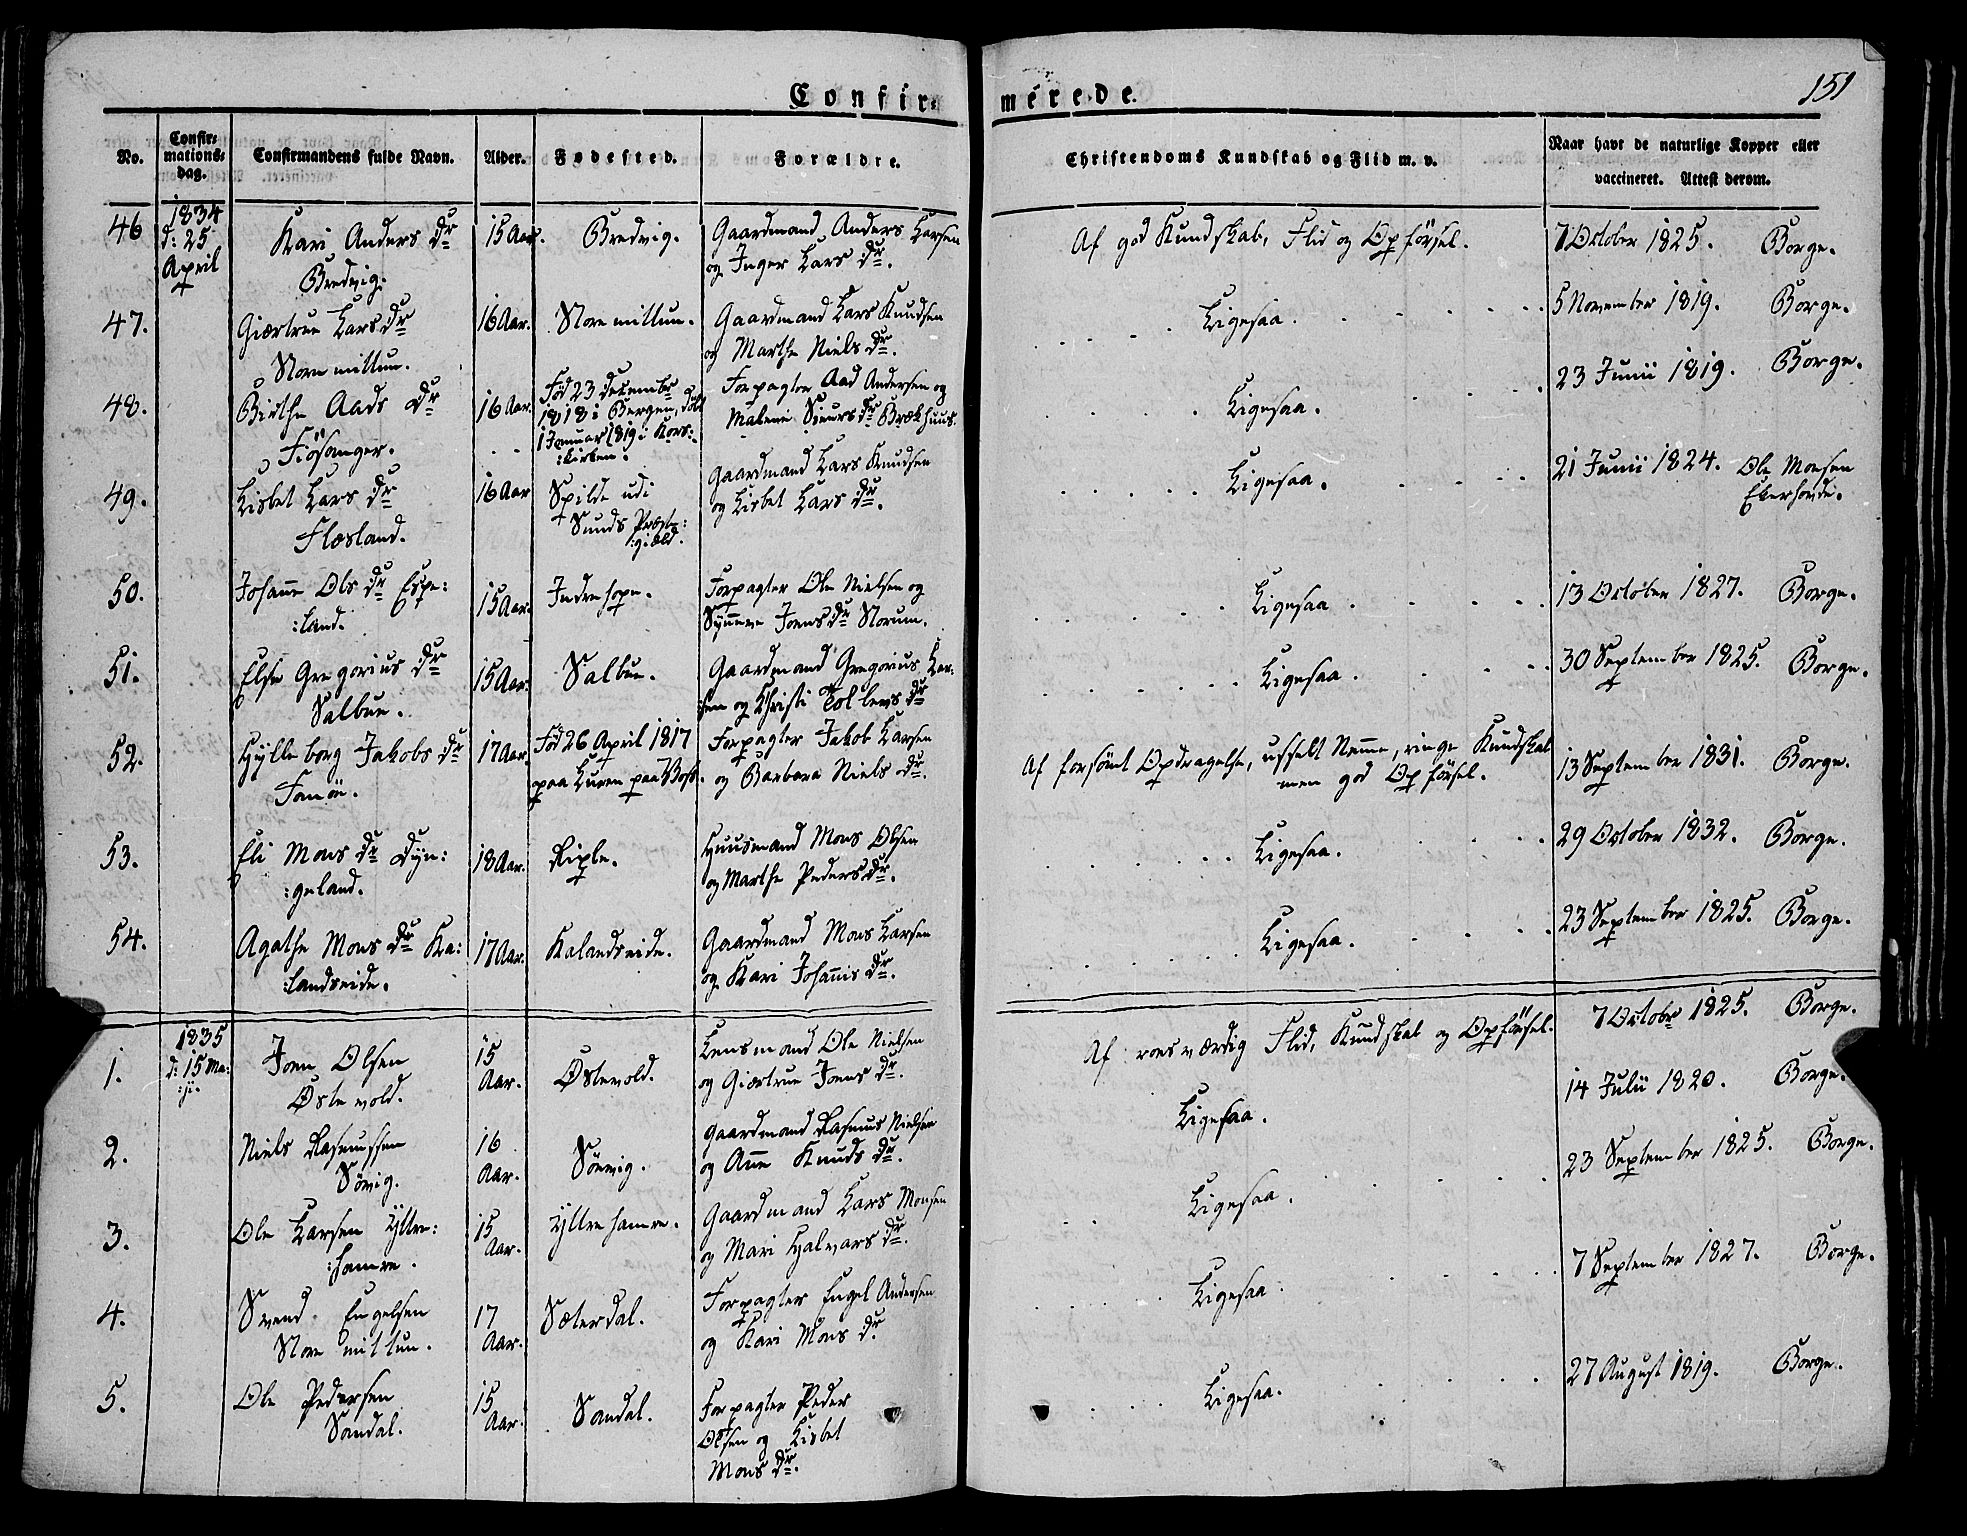 Confir=
mérede.
151
No.
Confir=
mations=
dag.
Confirmandens fulde Navn.
Alder.
Fødested.
Forældre.
Christendoms Kundskab og Flid m. v.
Naar havt de naturlige Kopper eller
vaccineret. Attest derom.
46
1834
d: 25
April
Kari Anders Dr
Bredvig.
15 Aar.
Bredvig.
Gaardmand Anders Larsen
og Inger Lars Dr.
Af god Kundskab, Flid og Opførsel.
7 October 1825. Borge.
47.
Giærtrue Lars Dr
Storemittun.
16 Aar.
Storemittun.
Gaardmand Lars Knudsen
og Marthe Niels Dr.
Ligesaa.
5 November 1819. Borge.
48.
Birthe Aads Dr
Fiøsanger.
16 Aar.
Fød 23 December
1818 i Bergen, Døbt
1 Januar 1819 i Kors:
:kirken.
Forpagter Aad Andersen og
Malene Siurs Dr Brækhuus.
Ligesaa.
23 Junii 1819. Borge.
49.
Lisbet Lars Dr
Flæsland.
16 Aar
Spilde udi
Sunds Præste:
:gield.
Gaardmand Lars Knudsen
og Lisbet Lars Dr.
Ligesaa.
21 Junii 1824. Ole Monsen
Ekerhovde.
50.
Johanne Ols Dr Espe:
:land.
15 Aar.
Indrehope.
Forpagter Ole Nielsen og
Synneve Joens Dr Storum.
Ligesaa
13 October 1827. Borge.
51.
Else Gregorius Dr
Salbue.
15 Aar.
Salbue.
Gaardmand Gregorius Lar:
:sen og Christi Tollevs Dr
Ligesaa.
30 September 1825. Borge.
52.
Hylleborg Jakobs Dr
Fanøe.
17 Aar.
Fød 26 April 1817
paa Luren paa Voss.
Forpagter Jakob Larsen
og Barbara Niels Dr.
Af forsømt Opdragelse, usselt Nemme, ringe Kundskab
men god Opførsel.
13 September 1831. Borge.
53.
Eli Mons Dr Dyn:
:geland.
18 Aar.
Riple.
Huusmand Mons Olsen
og Marthe Peders Dr.
Ligesaa.
29 October 1832. Borge.
54.
Agathe Mons Dr Ka:
:landseide.
17 Aar.
Kalandseide.
Gaardmand Mons Larsen
og Kari Johannis Dr.
Ligesaa.
23 September 1825. Borge.
1.
1835
d: 15 Ma:
:ji.
Joen Olsen
Østevold.
15
Aar.
Østevold.
Lensmand Ole Nielsen
og Giærtrue Joens Dr.
Af roesværdig Flid, Kundskab og Opførsel.
7 October 1825. Borge.
2.
Niels Rasmussen
Søvig.
16
Aar.
Søevig.
Gaardmand Rasmus Nielsen
og Anne Knuds Dr.
Ligesaa.
14 Julii 1820. Borge.
3.
Ole Larsen Yttre:
:hamre.
15
Aar.
Yttrehamre.
Gaardmand Lars Monsen
og Mari Halvars Dr.
Ligesaa.
23 September 1825. Borge.
4.
Svend Engelsen
Storemittun.
17
Aar.
Sæterdal.
Forpagter Engel Andersen
og Kari Mons Dr.
Ligesaa.
7 September 1827. Borge.
5.
Ole Pedersen
Sandal.
15
Aar.
Sandal.
Forpagter Peder
Olsen og Lisbet
Mons Dr.
Ligesaa.
27 August 1819. Borge.